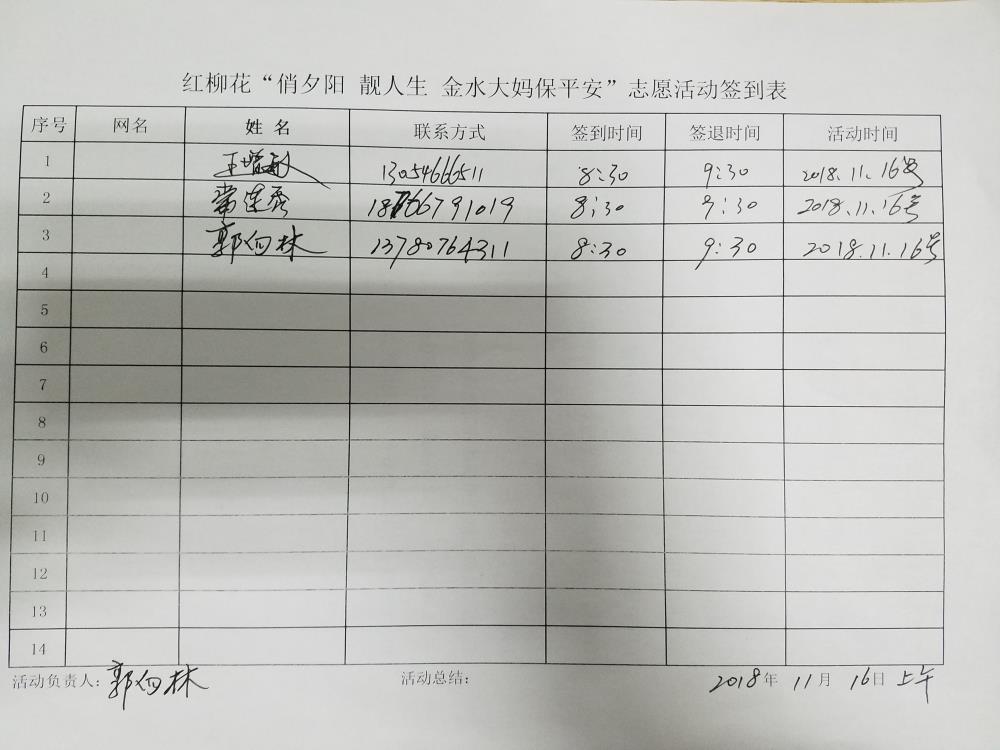 红柳花“俏夕阳 靓人生 金水大妈保平安”志愿活动签到表
序号 网名 姓名 联系方式 签到时间 签退时间 活动时间
1 王增敏 13054666511 8:30 9:30 2018.11.16号
2 常连秀 18766791019 8:30 9:30 2018.11.16号
3 郭向林 13780764311 8:30 9:30 2018.11.16号
4
5
6
7
8
9
10
11
12
13
14
活动负责人:郭向林 活动总结: 2018年 11月 16日 上午